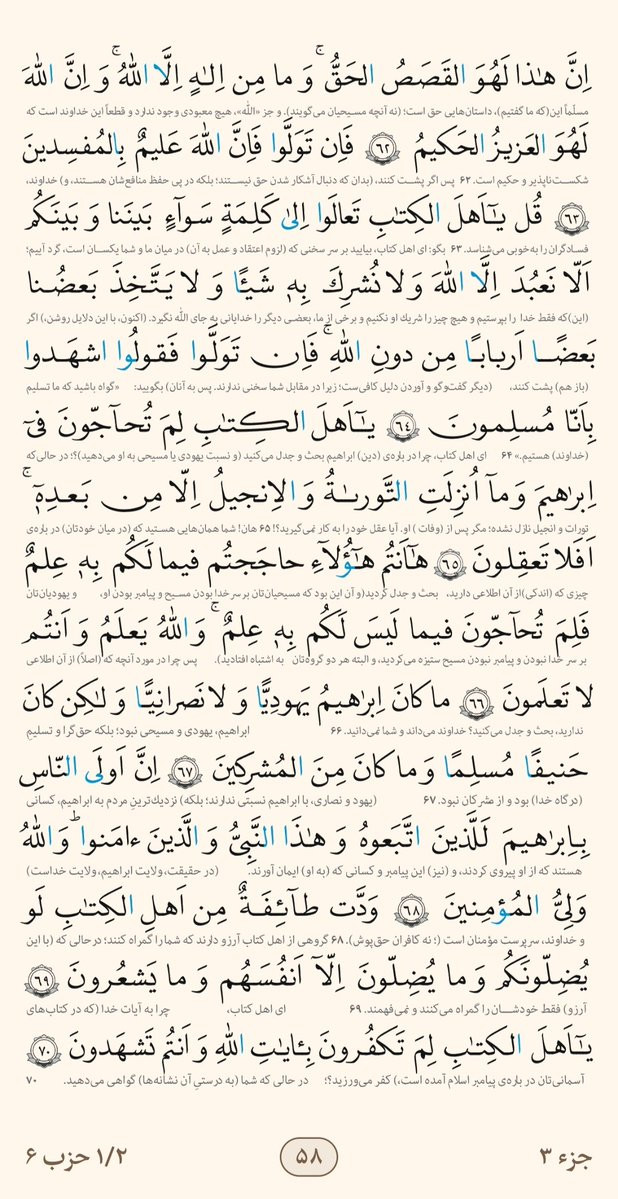 اِنَّ هٰذا لَهُوَ القَصَصُ الحَقُّ ۚ وَ ما مِن اِلٰهٍ اِلَّا اللهُ ۚ وَ اِنَّ اللهَ
مسلّماً این(که ما گفتیم)، داستان‌هایی حق است؛ (نه آنچه مسیحیان می‌گویند). و جز «الله»، هیچ معبودی وجود ندارد و قطعاً این خداوند است که
لَهُوَ العَزیزُ الحَکیمُ ﴿٦٢﴾ فَاِن تَوَلَّوا فَاِنَّ اللهَ عَلیمٌ بِالمُفسِدینَ
شکست‌ناپذیر و حکیم است. ۶۲ پس اگر پشت کنند، (بدان که دنبال آشکار شدن حق نیستند؛ بلکه در پی حفظ منافع‌شان هستند، و) خداوند،
﴿٦٣﴾ قُل یـٰٓاَهلَ الکِتٰبِ تَعالَوا اِلیٰ کَلِمَةٍ سَوآءٍ بَینَنا وَ بَینَکُم
فسادگران را به‌خوبی می‌شناسد. ۶۳ بگو: ای اهل کتاب، بیایید بر سر سخنی که (لزوم اعتقاد و عمل به آن) در میان ما و شما یکسان است، گرد آییم؛
اَلّا نَعبُدَ اِلَّا اللهَ وَ لا نُشرِكَ بِهٖ شَیـًٔا وَ لا یَتَّخِذَ بَعضُنا
(این)که فقط خدا را بپرستیم و هیچ چیز را شریك او نکنیم و برخی از ما، بعضی دیگر را خدایانی به جای الله نگیرد. (اکنون، با این دلایل روشن،) اگر
بَعضًا اَربابًا مِن دونِ اللهِ ۚ فَاِن تَوَلَّوا فَقولُوا اشهَدوا
(باز هم) پشت کنند، (دیگر گفت‌وگو و آوردن دلیل کافی‌ست؛ زیرا در مقابل شما سخنی ندارند. پس به آنان) بگویید: «گواه باشید که ما تسلیم
بِاَنّا مُسلِمونَ ﴿٦٤﴾ یـٰٓاَهلَ الکِتٰبِ لِمَ تُحآجّونَ فیٓ
(خداوند) هستیم.» ۶۴ ای اهل کتاب، چرا در باره‌ی (دین) ابراهیم بحث و جدل می‌کنید (و نسبت یهودی یا مسیحی به او می‌دهید)؟؛ در حالی‌که
اِبرٰهیمَ وَ مآ اُنزِلَتِ التَّورىٰةُ وَ الاِنجیلُ اِلّا مِن بَعدِهٖٓ ۚ
تورات و انجیل نازل نشده؛ مگر پس از (وفات) او. آیا عقل خود را به کار نمی‌گیرید؟! ۶۵ هان! شما همان‌هایی هستید که (در میان خودتان) در باره‌ی
اَفَلا تَعقِلونَ ﴿٦٥﴾ هٰٓاَنتُم هٰٓؤُلآءِ حاجَجتُم فیما لَکُم بِهٖ عِلمٌ
چیزی که (اندکی) از آن اطلاعی دارید، بحث و جدل کردید(و آن این بود که مسیحیان‌تان بر سر خدا بودن مسیح و پیامبر بودن او، و یهودیان‌تان
فَلِمَ تُحآجّونَ فیما لَیسَ لَکُم بِهٖ عِلمٌ ۚ وَ اللهُ یَعلَمُ وَ اَنتُم
بر سر خدا نبودن و پیامبر نبودن مسیح ستیزه می‌کردید، و البته هر دو گروه‌تان به اشتباه افتادید). پس چرا در مورد آنچه که (اصلاً) از آن اطلاعی
لا تَعلَمونَ ﴿٦٦﴾ ما کانَ اِبرٰهیمُ یَهودِیًّا وَ لا نَصرانِیًّا وَ لٰکِن کانَ
ندارید، بحث و جدل می‌کنید؟ خداوند می‌داند و شما نمی‌دانید. ۶۶ ابراهیم، یهودی و مسیحی نبود؛ بلکه حق‌گرا و تسلیم
حَنیفًا مُسلِمًا وَ ما کانَ مِنَ المُشرِکینَ ﴿٦٧﴾ اِنَّ اَولَی النّاسِ
(درگاه خدا) بود و از مشرکان نبود. ۶۷ (یهود و نصاری، با ابراهیم نسبتی ندارند؛ بلکه) نزدیك‌ترینِ مردم به ابراهیم، کسانی
بِاِبرٰهیمَ لَلَّذینَ اتَّبَعوهُ وَ هٰذَا النَّبِیُّ وَ الَّذینَ ءامَنوا ؕ وَ اللهُ
هستند که از او پیروی کردند، و (نیز) این پیامبر و کسانی که (به او) ایمان آورند. (در حقیقت، ولایت ابراهیم، ولایت خداست)
وَلِیُّ المُؤمِنینَ ﴿٦٨﴾ وَدَّت طآئِفَةٌ مِن اَهلِ الکِتٰبِ لَو
و خداوند، سرپرست مؤمنان است (؛ نه کافران حق‌پوش). ۶۸ گروهی از اهل کتاب آرزو دارند که شما را گمراه کنند؛ در حالی که (با این
یُضِلّونَکُم وَ ما یُضِلّونَ اِلّآ اَنفُسَهُم وَ ما یَشعُرونَ ﴿٦٩﴾
آرزو) فقط خودشان را گمراه می‌کنند و نمی‌فهمند. ۶۹ ای اهل کتاب، چرا به آیات خدا (که در کتاب‌های
یـٰٓاَهلَ الکِتٰبِ لِمَ تَکفُرونَ بِـٔایٰتِ اللهِ وَ اَنتُم تَشهَدونَ ﴿٧٠﴾
آسمانی‌تان در باره‌ی پیامبر اسلام آمده است،) کفر می‌ورزید؟؛ در حالی که شما (به درستیِ آن نشانه‌ها) گواهی می‌دهید. ۷۰
جزء ۳
۵۸
۱/۲ حزب ۶